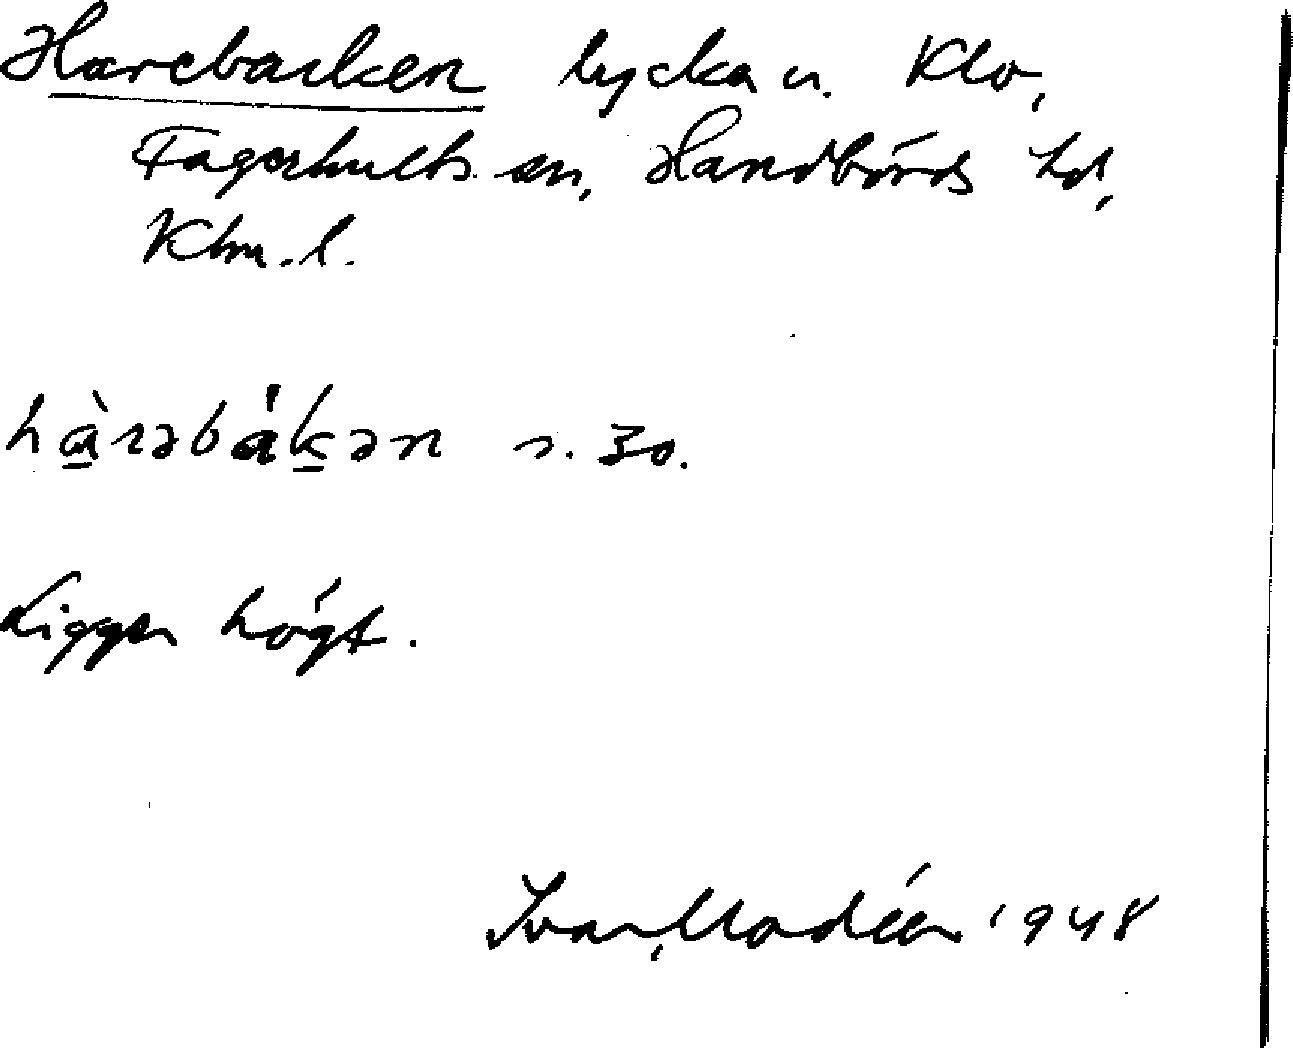 Harebacken lycka u. Klo,
Fagerhults sn, Handbörds hd,
Klm. l.
hàrəbákən s. 30.
Ligger högt.
Ivar Modéer 1948